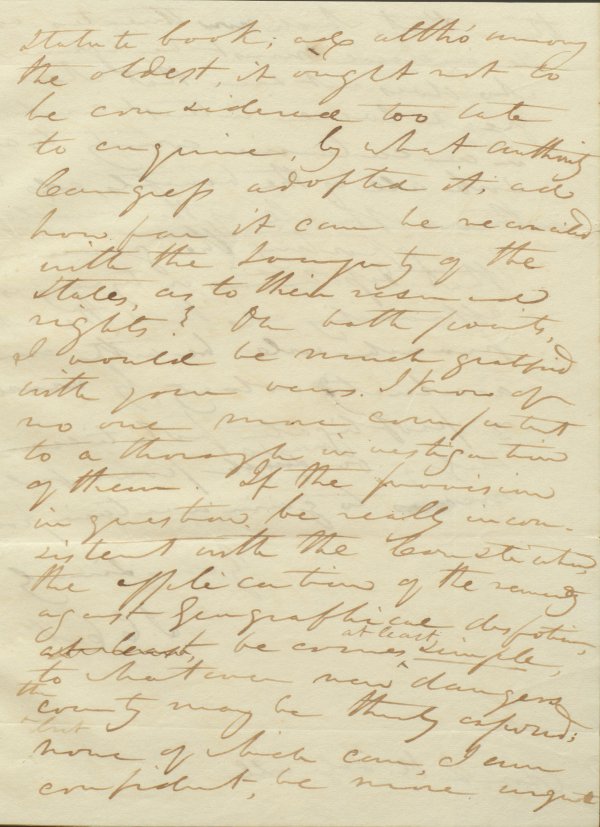 statute book; and altho' among
the oldest, it ought not to
be considered too late
to enquire, by what authority
Congress adopted it; and
how far it can be reconciled
with the sovereignty of the
States, as to their reserved
rights? On both points,
I would be much gratified
with your views. I know of
no one more competent
to a thorough investigation
of them. If the provision
in question be really incon-
sistent with the Constitution,
the application of the remedy
against Geographical despotism,
at least,
at least,
becomes simple,
to whatever new dangers
the
country may be thereby exposed;
but
none of which can, I am
confident, be more urgent